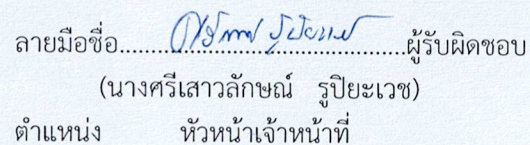 ลายมือชื่อ..........................................ผู้รับผิดชอบ
(นางศรีเสาวลักษณ์ รูปิยะเวช)
ตำแหน่ง หัวหน้าเจ้าหน้าที่